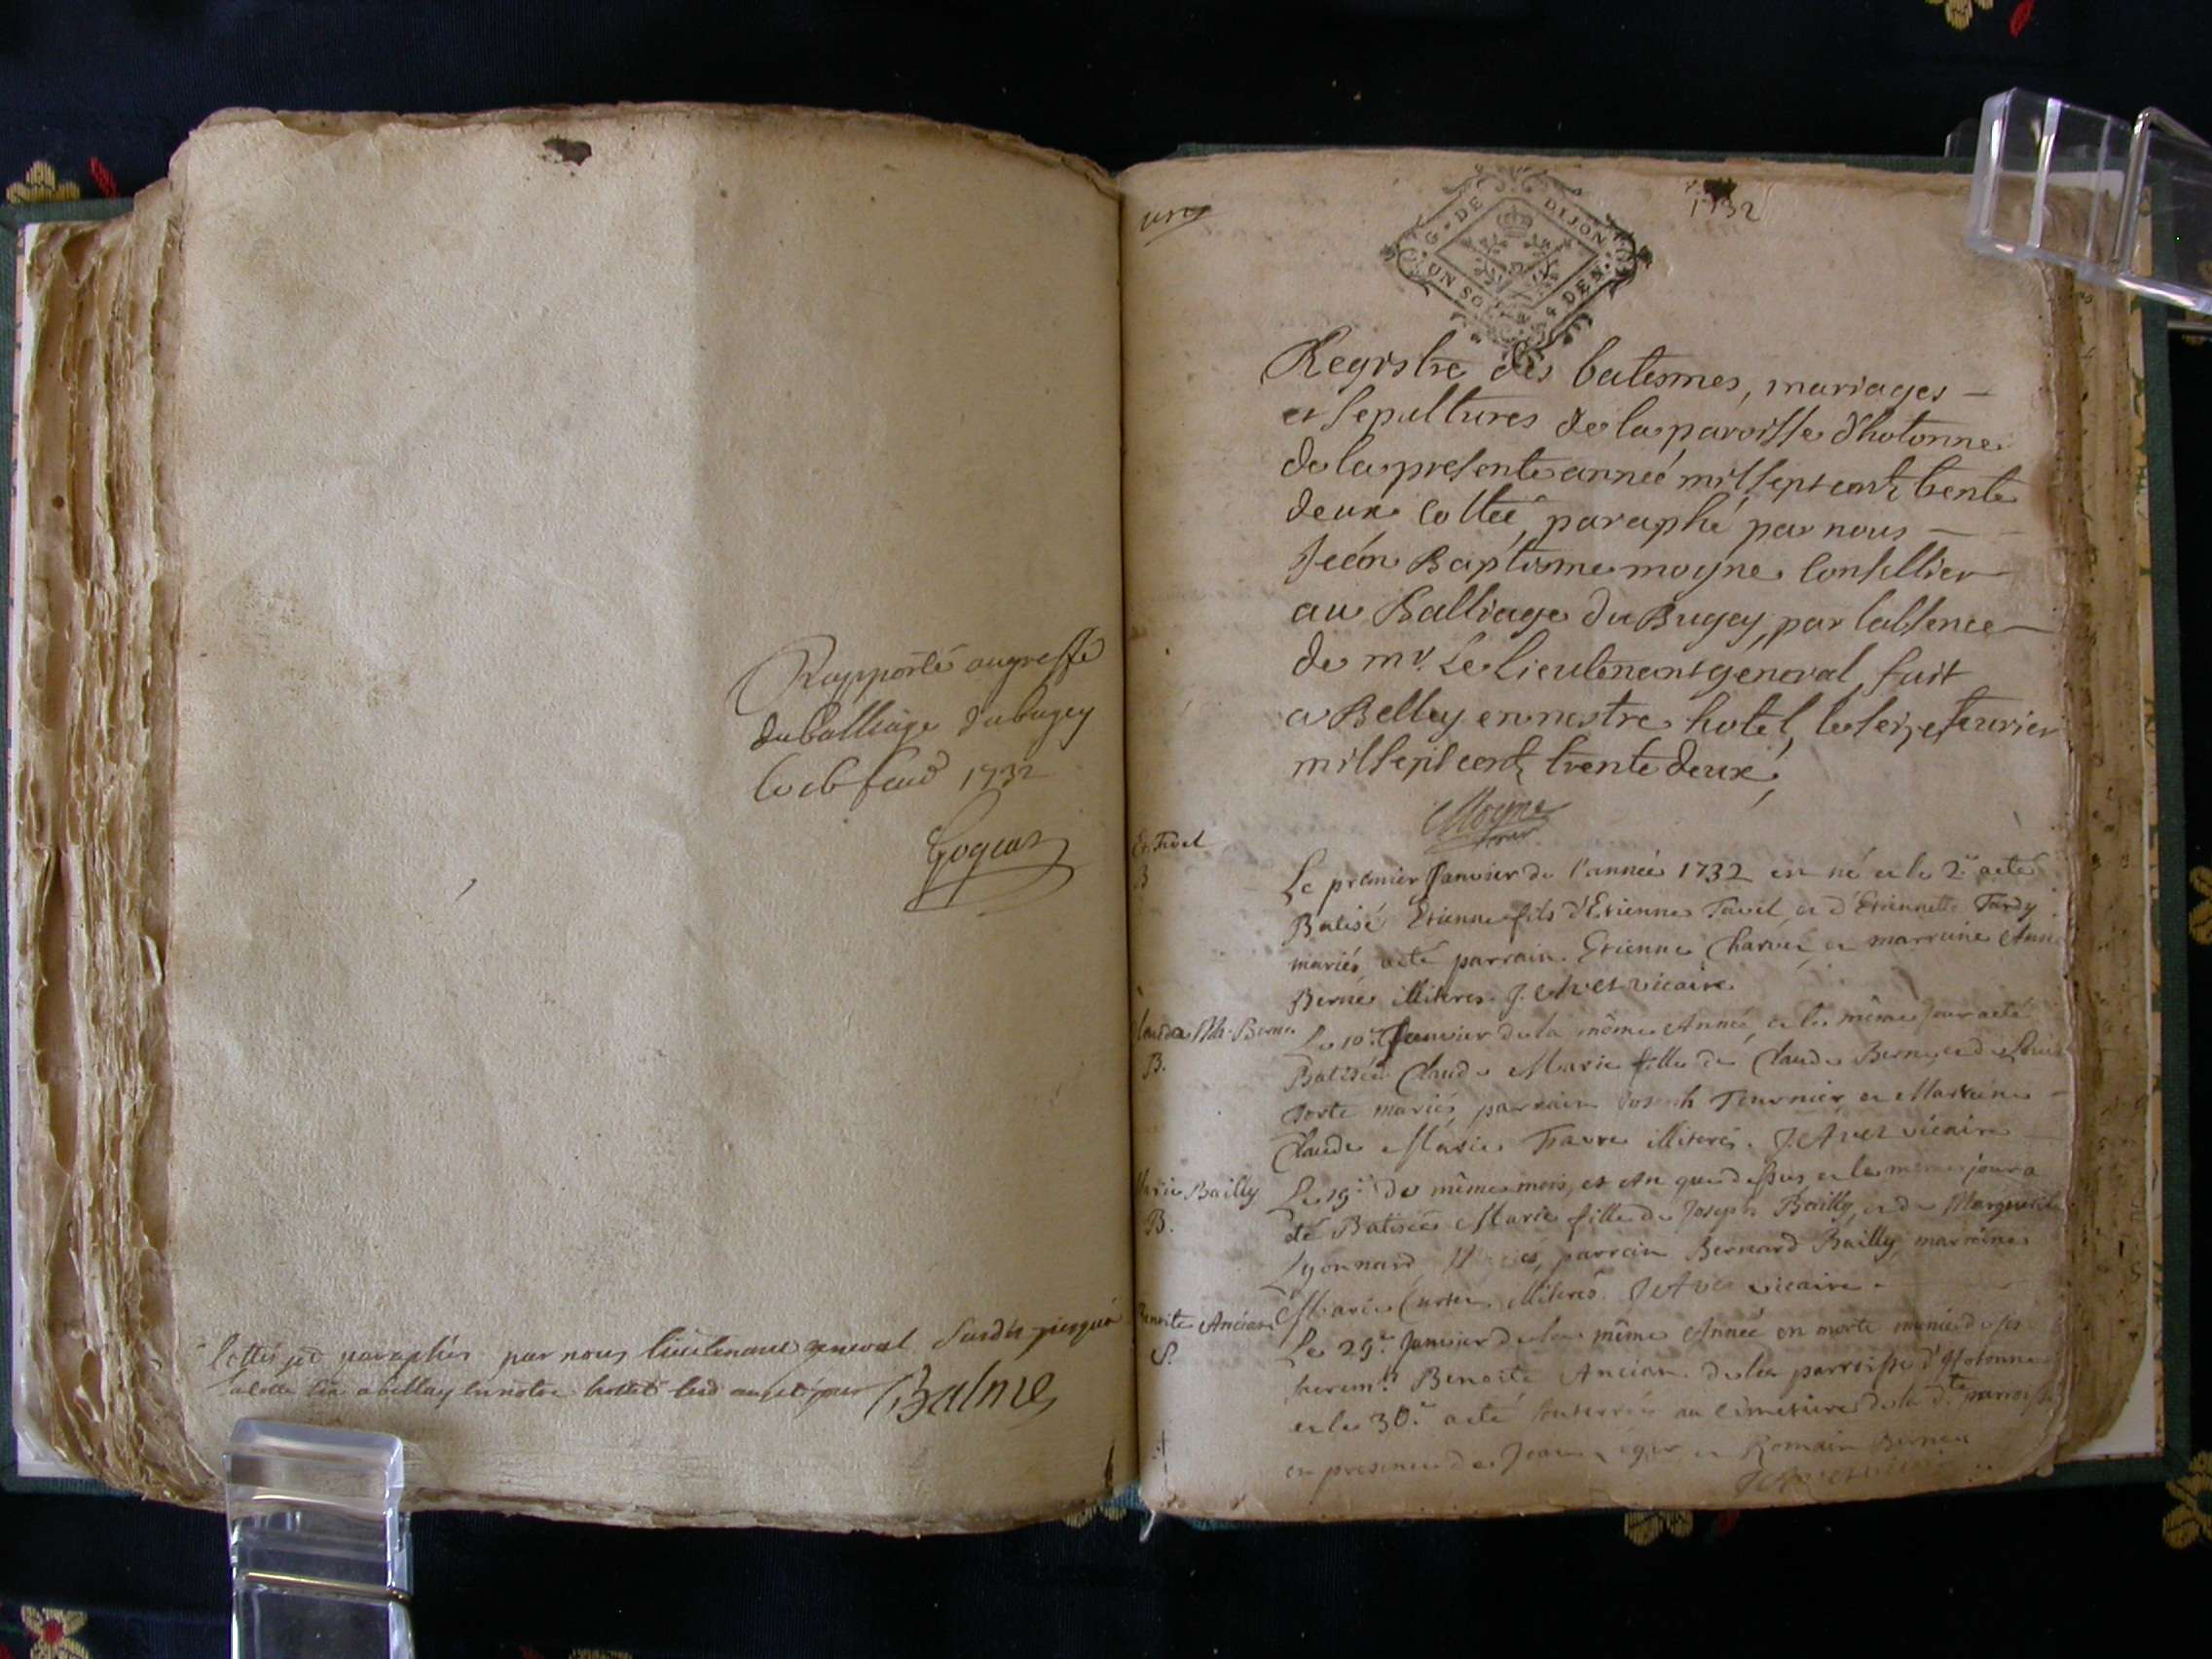 Rapporté au greffe
du balliage du bugey
1732
Cottés et paraphés par nous lieutenant general
a bellay en notre hottel
Balme
une
1732
G. DE DIJON
UN SOL 4 DEN.
Registre des batesmes, mariages
et sepultures de la paroisse d'hotonne
de la presente anneé mil sept cent trente
deux cottée, paraphé par nous
Jean Baptisme moyne Conseillier
au Balliage du Bugey, par labsence
de mr. Le Lieutenant general, fait
a Belley en nostre hotel, le seize feurier
mil sept cent trente deux,
Moyne
Et. Tavel
B
Le premier Janvier de l'année 1732 est né et le 2e a eté
Batisé Etienne fils d'Etienne Tavel et d'Etiennette Tardy
mariés a eté parrain Etienne Charvet et marraine Anne
Berne illiteres. J. Avet vicaire
Claudea Ma. Berne
B.
Le 10e Janvier de la même Année, et le même jour a eté
Batisée Claude Marie fille de Claude Berne et de
mariés, parrain Joseph Tournier et Marraine
Claude Marie Favre illiterés. J. Avet vicaire
Marie Bailly
B.
Le 19e du même mois, et An que dessus et le même jour a
été Batisée Marie fille de Joseph Bailly, et de Marguerite
Lyonnard parrain Bernard Bailly, marraine
Marie illiterés. J. Avet vicaire
Benoite Ancian
S.
Le 29e Janvier de la même Année est morte munie de ses
Benoite Ancian de la parroisse d'Hotonne
et le 30e a eté enterrée au cimetiere de la dte parroisse
en presence de Jean et Romain Berne
J. Avet vicaire